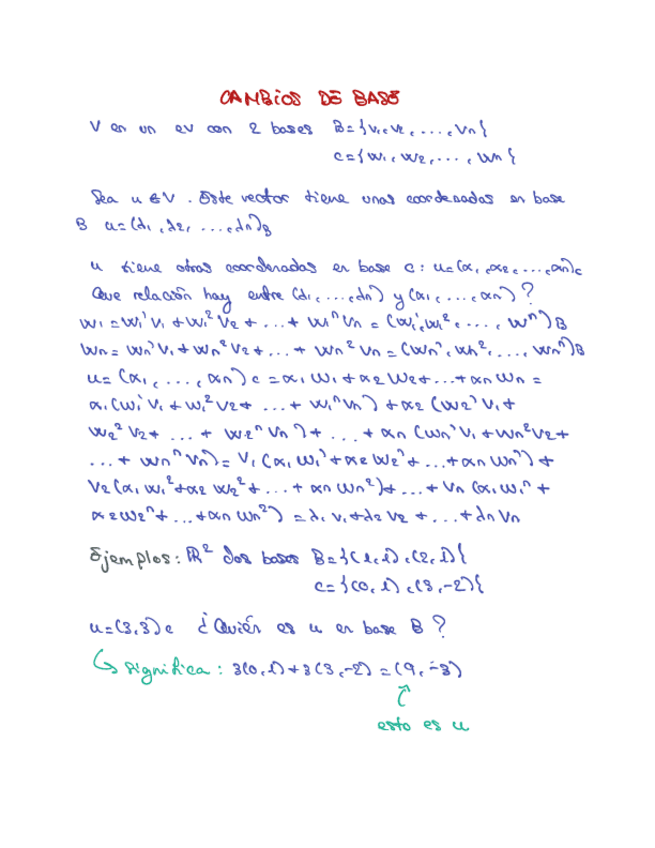 CAMBIOS DE BASE
V en un ev con 2 bases B={v₁,v₂, ...., vₙ{
C={w₁, w₂, ..., wₙ{
Sea u ∈ V. Este vector tiene unas coordenadas en base
B u=(λ₁, λ₂, ..., λₙ)B
u tiene otras coordenadas en base C: u=(α₁, α₂, ..., αₙ)c
Que relación hay entre (λ₁, ..., λₙ) y (α₁, ..., αₙ)?
w₁ = w₁¹ v₁ + w₁² v₂ + ... + w₁ⁿ vₙ = (w₁¹, w₁², ..., wⁿ)B
wₙ = wₙ¹ v₁ + wₙ² v₂ + ... + wₙ² vₙ = (wₙ¹, wₙ², ..., wₙⁿ)B
u = (α₁, ..., αₙ)c = α₁ w₁ + α₂ w₂ + ... + αₙ wₙ =
α₁(w₁¹ v₁ + w₁² v₂ + ... + w₁ⁿ vₙ) + α₂ (w₂¹ v₁ +
w₂² v₂ + ... + w₂ⁿ vₙ) + ... + αₙ (wₙ¹ v₁ + wₙ² v₂ +
... + wₙⁿ vₙ) = v₁ (α₁ w₁¹ + α₂ w₂¹ + ... + αₙ wₙ¹) +
v₂ (α₁ w₁² + α₂ w₂² + ... + αₙ wₙ²) + ... + vₙ (α₁ w₁ⁿ +
α₂ w₂ⁿ + ... + αₙ wₙ²) = λ₁ v₁ + λ₂ v₂ + ... + λₙ vₙ
Ejemplos: ℝ² dos bases B={(1,1),(2,1){
C={(0,1),(3,-2){
u=(3,3)c ¿Quién es u en base B?
↳ significa: 3(0,1)+3(3,-2)=(9,-3)
↑
esto es u